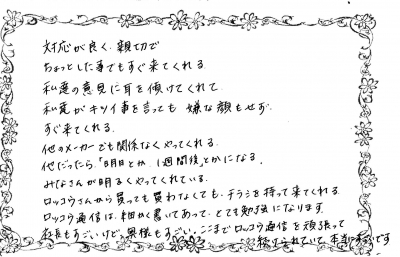 対応が良く、親切で
ちょっとした事でもすぐ来てくれる
私達の意見に耳を傾けてくれて
私達がキツイ事を言っても 嫌な顔もせず
すぐ来てくれる。
他のメーカーでも関係なくやってくれる。
他だったら、「明日とか、1週間後」とかになる。
みなさんが明るくやってくれている
ロッコウさんから買っても買わなくても、チラシを持って来てくれる
ロッコウ通信は、細かく書いてあって、とても勉強になります。
社長もすごいけど、奥様もすごい。ここまでロッコウ通信を頑張って
続けられていて、本当にすごいです